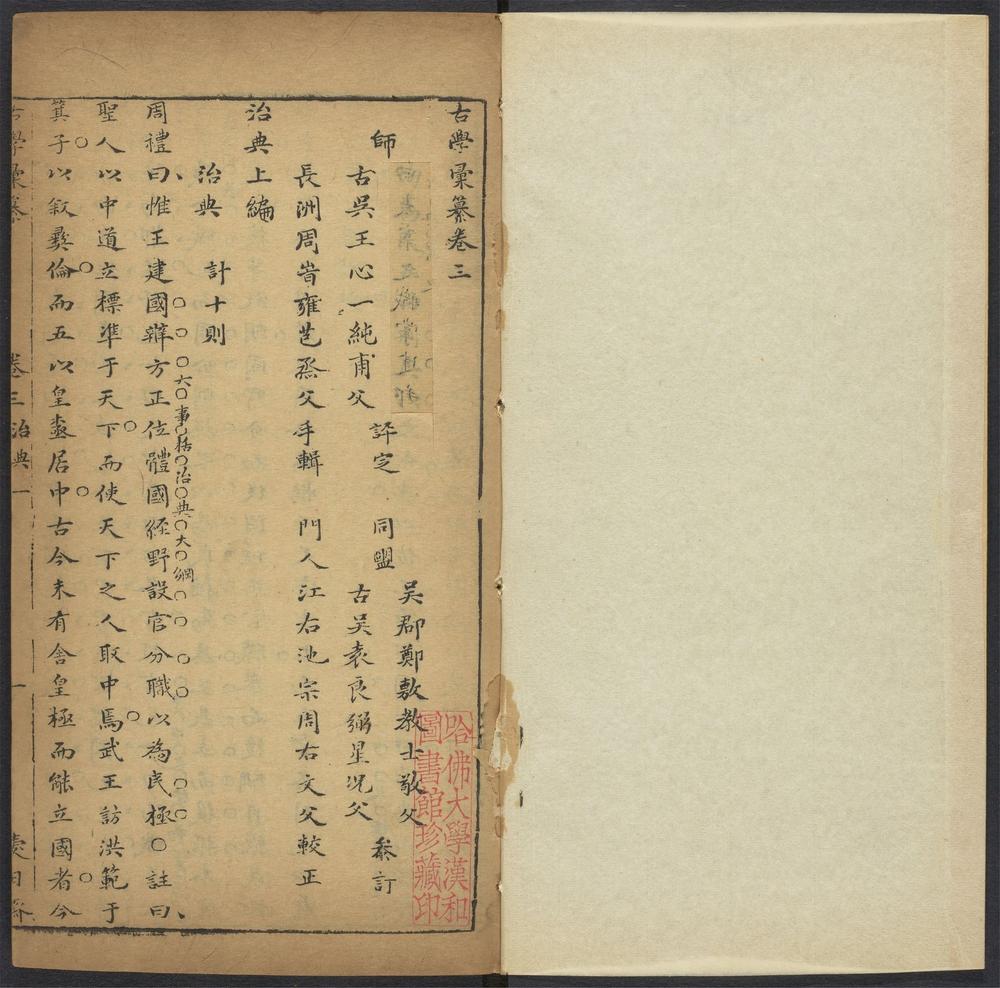 古學彙纂卷三
師
吳郡鄭敷教士敬父
古吳王心一純甫父 評定 同盟 古吳袁良弼星況父 叅訂
長洲周旹雍芑烝父手輯 門人江右池宗周右文父較正
治典上編
治典 計十則
周禮曰惟王建國辨方正位體國經野設官分職以為民極〇註曰
六事括治典大綱
聖人以中道立標準于天下而使天下之人取中焉武王訪洪範于
箕子以叙彝倫而五以皇極居中古今未有舍皇極而能立國者今
古學彙纂 卷三治典 一
哈佛大學漢和
圖書館珍藏印